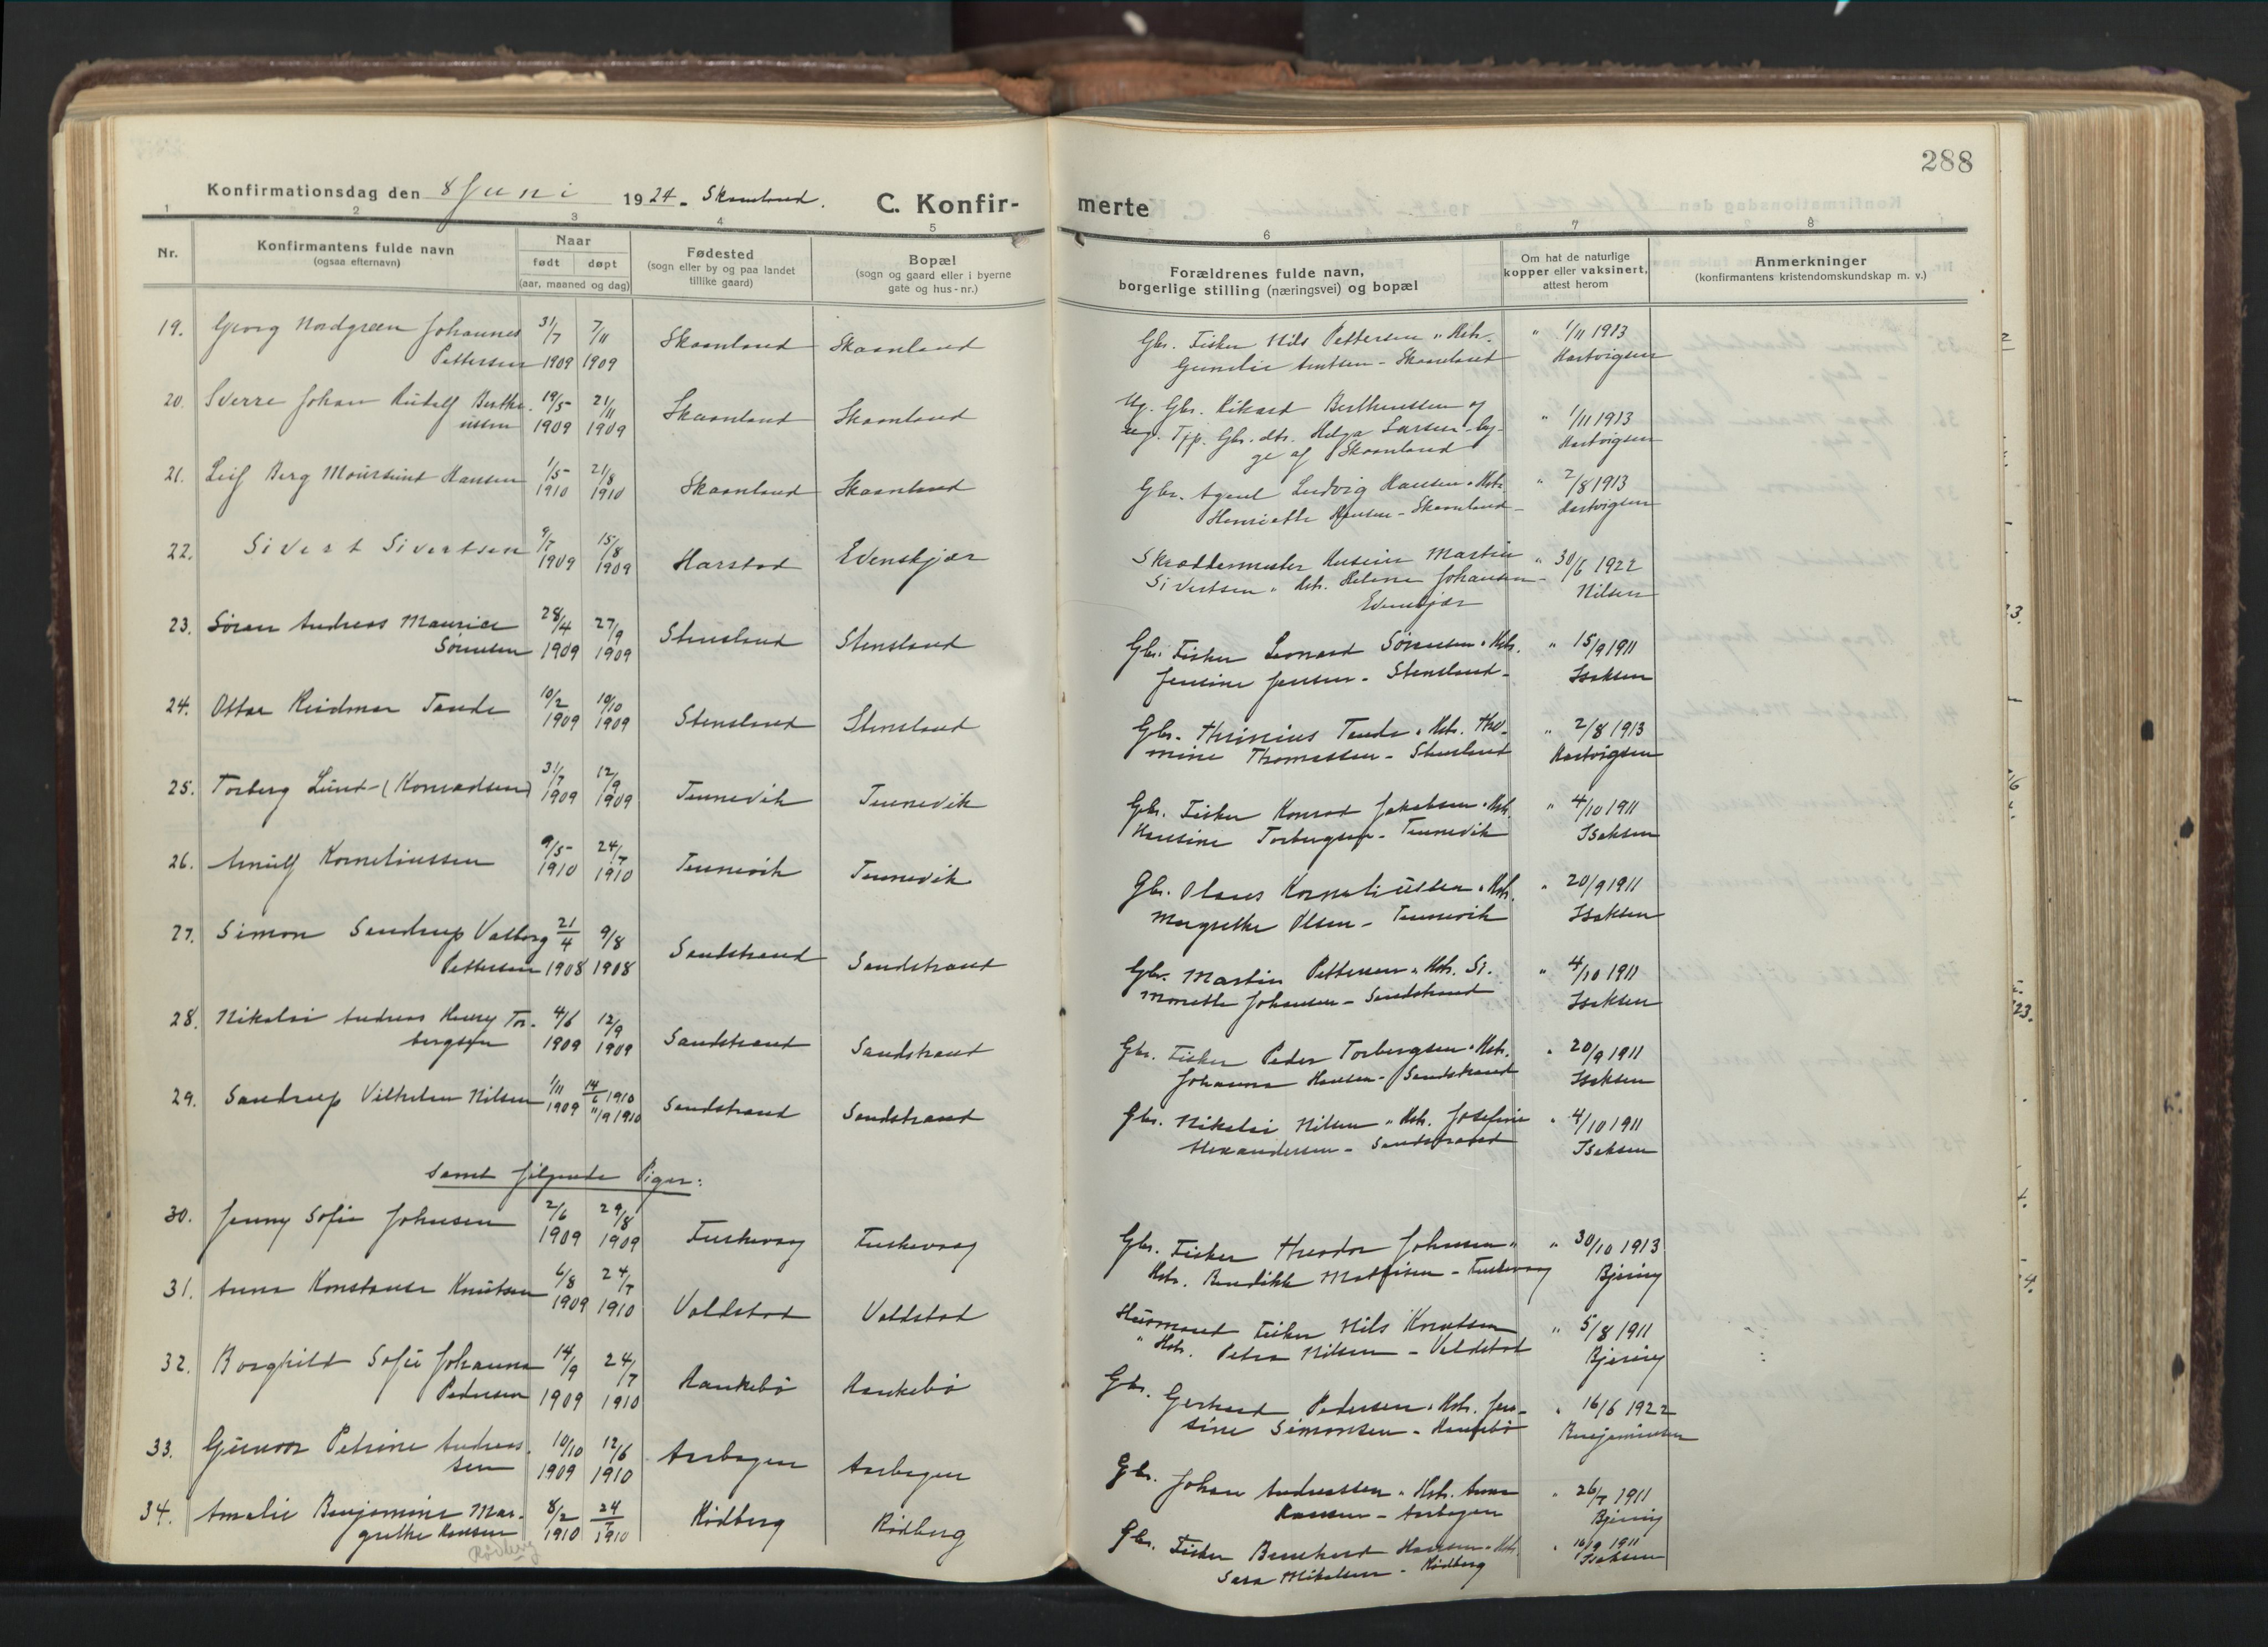 288
Konfirmationsdag den 8 Juni 1924 - Skaanland.
C. Konfir-
merte
1 2 3 4 5 6 7 8
Nr.
Konfirmantens fulde navn
(ogsaa efternavn)
Naar
født døpt
(aar, maaned og dag)
Fødested
(sogn eller by og paa landet
tillike gaard)
Bopæl
(sogn og gaard eller i byerne
gate og hus-nr.)
Forældrenes fulde navn,
borgerlige stilling (næringsvei) og bopæl
Om hat de naturlige
kopper eller vaksinert,
attest herom
Anmerkninger
(konfirmantens kristendomskundskap m. v.)
19. Georg Nordgreen Johannes 31/7 7/11 Skaanland Skaanland Gbr. Fisker Nils Pettersen " Hstr. " 1/11 1913
Pettersen 1909 1909 Gunelie Arntsen - Skaanland Hartvigsen
20. Sverre Johan Rudolf Berthe- 19/5 21/11 Skaanland Skaanland Ug. Gbr. Rikard Bertheussen og " 1/11 1913
ussen 1909 1909 ug. Tjp. Gbr. dtr. Helga Larsen beg- Hartvigsen
ge af Skaanland
21. Leif Berg Moursund Hansen 1/5 21/8 Skaanland Skaanland Gbr. Agent Ludvig Hansen " Hstr. " 2/8 1913
1910 1910 Henriette Hansen - Skaanland - Hartvigsen
22. Sivert Sivertsen 9/7 15/8 Harstad Evenskjær Skræddermester Martin " 30/6 1922
1909 1909 Sivertsen " Hstr. Helene Johansen - Nilsen
Evenskjær
23. Søren Andreas Maurice 28/4 27/9 Stensland Stensland Gbr. Fisker Leonard Sørensen " Hstr. " 15/9 1911
Sørensen 1909 1909 Jensine Jensen - Stensland - Isaksen
24. Ottar Reidmar Tande 10/2 10/10 Stensland Stensland Gbr. Tande " Hstr. Tho- " 2/8 1913
1909 1909 mine Thomassen - Stensland Hartvigsen
25. Torberg Lund - (Konradsen) 31/7 12/9 Tennevik Tennevik Gbr. Fisker Konrad Jakobsen " Hstr. " 4/10 1911
1909 1909 Hansine Torbergsen - Tennevik Isaksen
26. Arnulf Korneliussen 9/5 24/7 Tennevik Tennevik Gbr. Olaus Korneliussen " Hstr. " 20/9 1911
1910 1910 Margrethe Olsen - Tennevik Isaksen
27. Simon Sandrup Valborg 21/4 9/8 Sandstrand Sandstrand Gbr. Martin Pettersen " Hstr. Si- " 4/10 1911
Pettersen 1908 1908 monette Johansen - Sandstrand Isaksen
28. Nikolai Andreas Henry Tor- 4/6 12/9 Sandstrand Sandstrand Gbr. Fisker Peder Torbergsen " Hstr. " 20/9 1911
bergsen 1909 1909 Johanna Hansen - Sandstrand Isaksen
29. Sandrup Vilhelm Nilsen 1/11 14/6 1910 Sandstrand Sandstrand Gbr. Nikolai Nilsen " Hstr. Josefine " 4/10 1911
1909 11/9 1910 Alexandersen - Sandstrand Isaksen
samt følgende Piger:
30. Jenny Sofie Johnsen 2/6 29/8 Fuskevaag Fuskevaag Gbr. Fisker Theodor Johnsen " " 30/10 1913
1909 1909 Hstr. Benedikte Mathisen - Fuskevaag Bjering
31. Anna Konstanse Knutsen 6/8 24/7 Voldstad Voldstad Husmand Fisker Nils Knutsen " 5/8 1911
1909 1910 " Hstr. Petra Nilsen - Voldstad Bjering
32. Borghild Sofie Johanna 14/9 24/7 Raukebø Raukebø Gbr. Gerhard Pedersen " Hstr. Jen- " 16/6 1922
Pedersen 1909 1910 sine Simonsen - Raukebø Benjaminsen
33. Gunvor Petrine Andreas- 10/10 12/6 Aarbogen Aarbogen Gbr. Johan Andreassen " Hstr. Anna " 26/7 1911
sen 1909 1910 Hansen - Aarbogen Bjering
34. Amalie Benjamine Mar- 8/2 24/7 Rødberg Rødberg Gbr. Fisker Hansen " Hstr. " 16/9 1911
grethe Hansen 1910 1910 Sara Mikalsen - Rødberg Isaksen
Rødberg